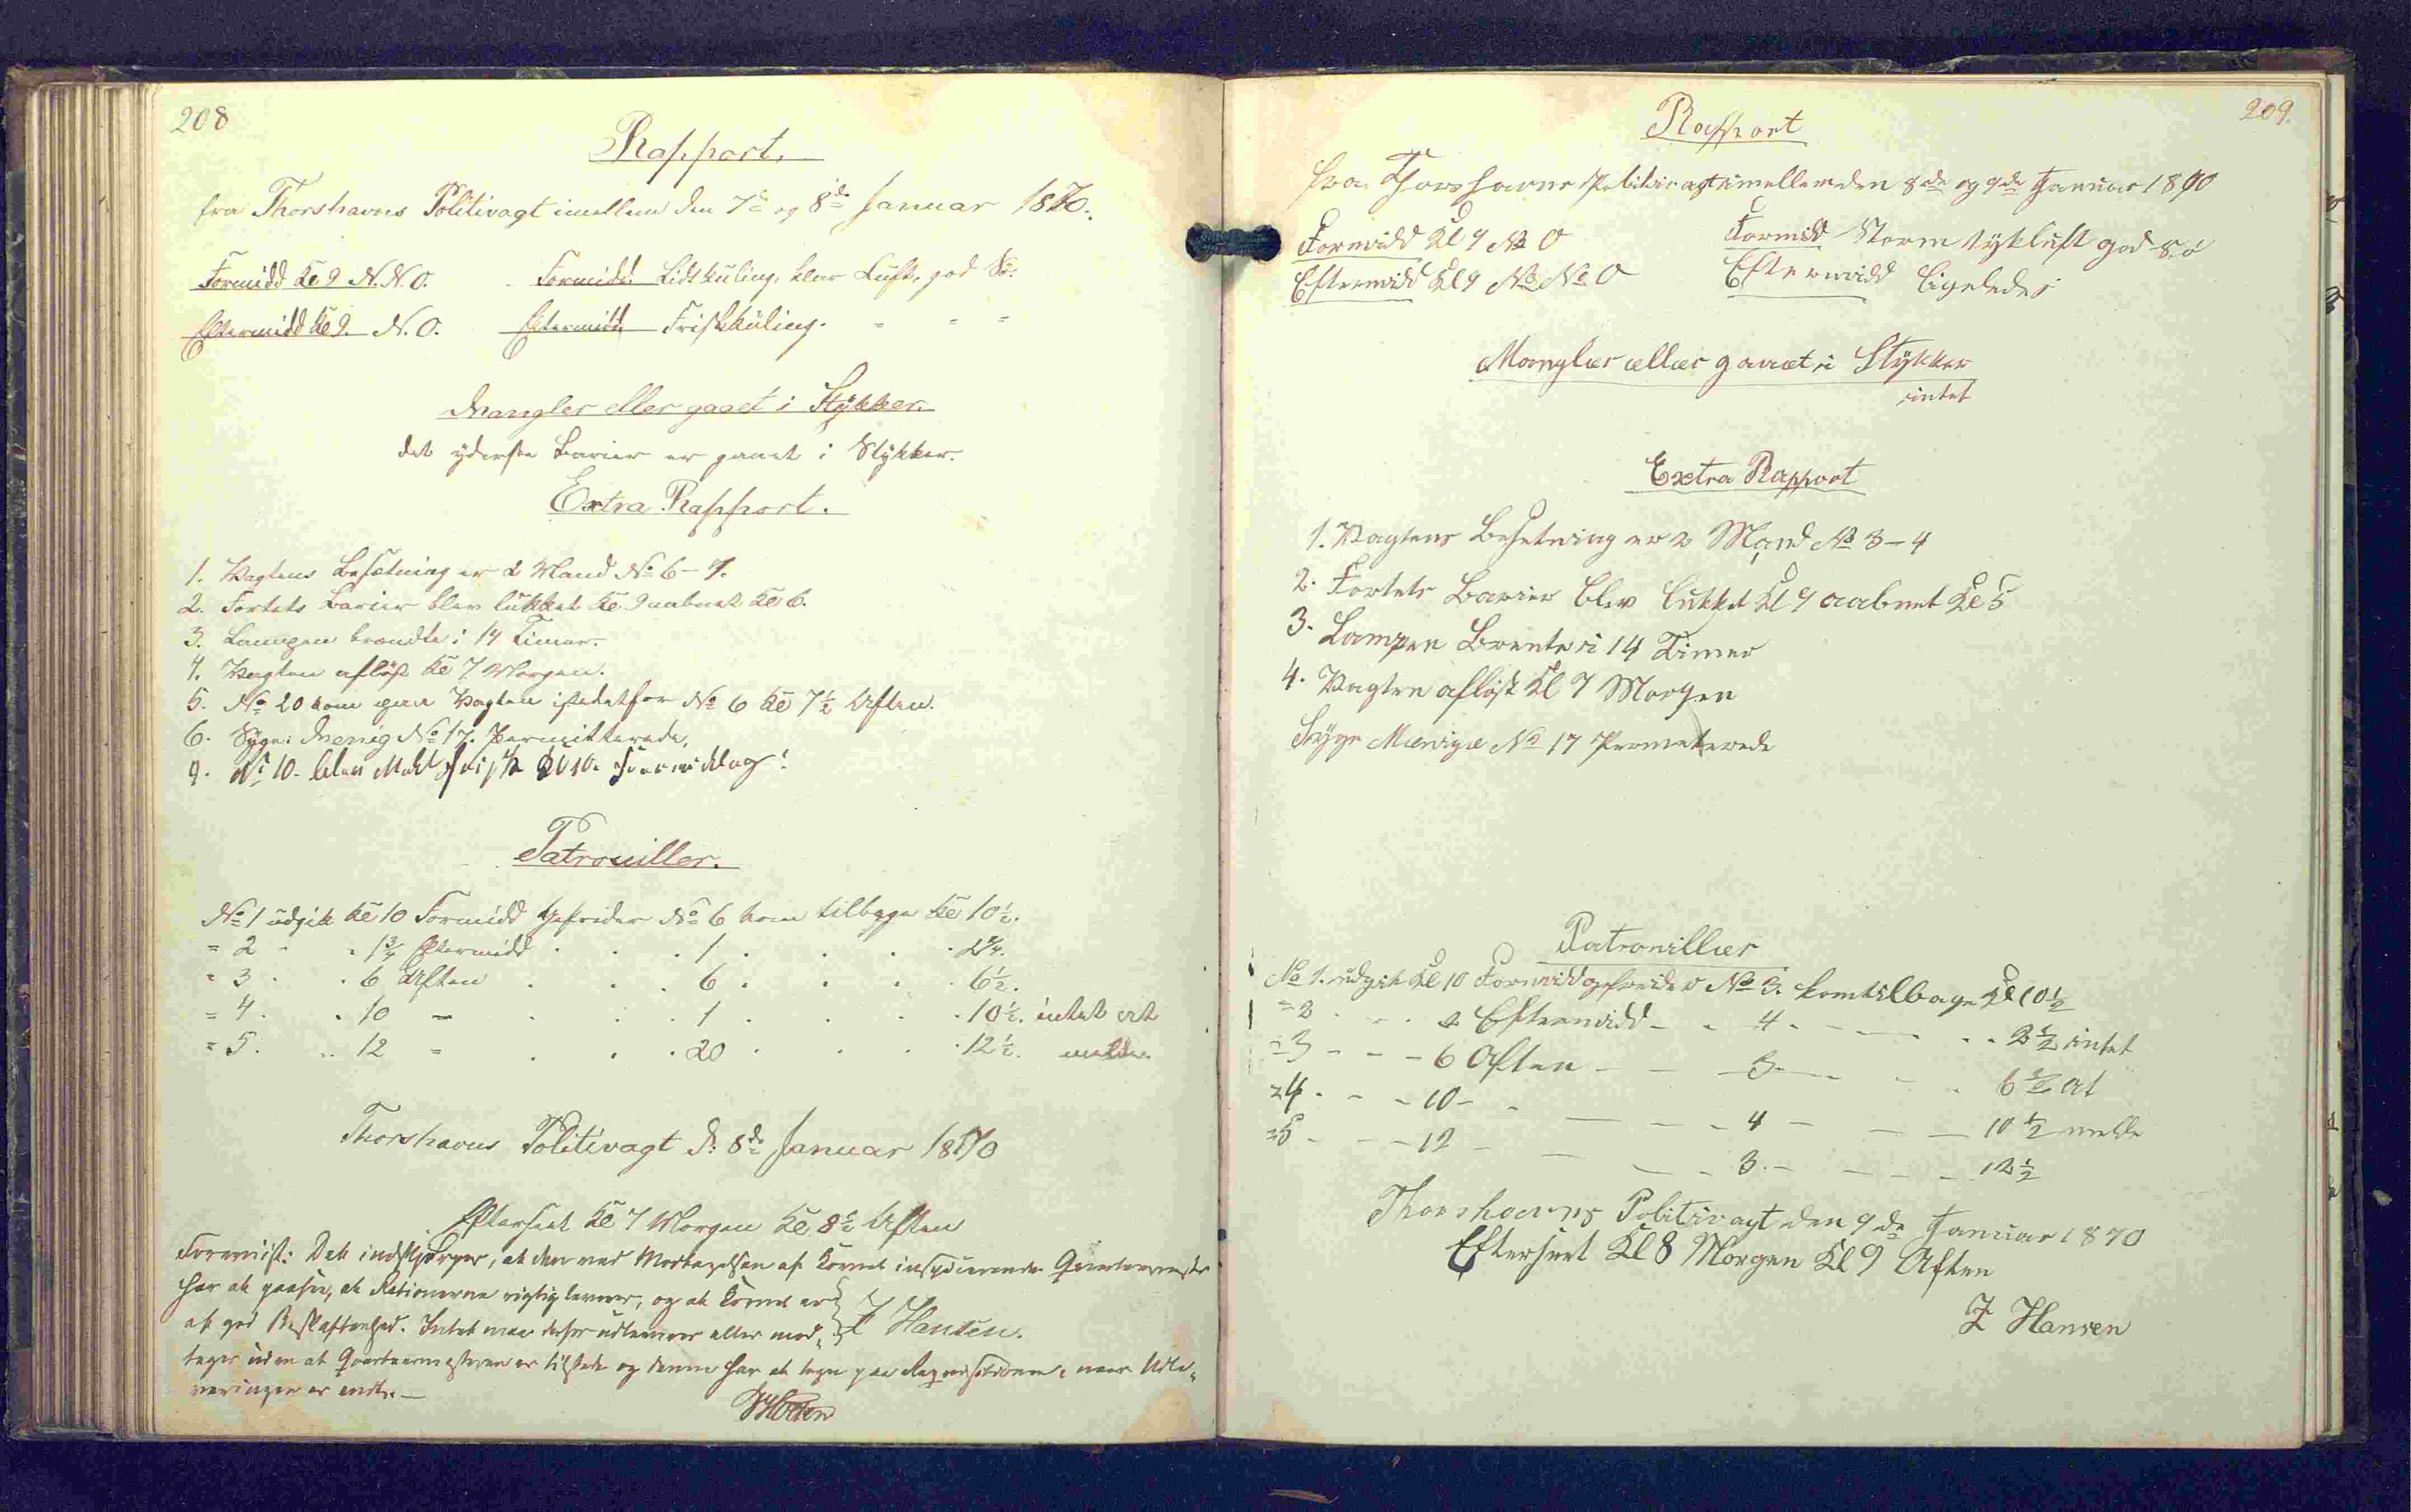 208
Rapport.
fra Thorshavns Politivagt imellem den 7de og 8de Januar 1870.
Formidd Kl 9 N.N.O. Formidd. Lidt kuling, klar Luft, god Sö.
Eftermidd Kl 9. N.O. Eftermidd. Frisk kuling. " " "
Mangler eller gaaet i Stÿkker.
det ÿderste Barier er gaaet i Stÿkker.
Extra Rapport.
1. Vagtens Besætning er 2 Mand No 6 - 7.
2. Fortets Barier blev lukket Kl 9 aabnet Kl 6.
3. Lampen brændte i 14 Timer.
4. Vagten aflöst Kl 7 Morgen.
5. No 20 kom paa Vagten istedetfor No 6 Kl 7½ Aften.
6. Syge: Menig No 17. Permitterede,
No 10. blev Kl 10. Formiddag
Patrouiller.
No 1 udgik Kl 10 Formidd Gefreider No 6 kom tilbage Kl 10½.
" 2 " " 1¾ Eftermidd . . . 1 . . . . 2¼.
" 3 . . 6 Aften . . . 6 . . . . 6½.
" 4 . . 10 - . . . 1 . . . . 10½. intet at
" 5. .. 12 " . . . 20 . . . . 12½. melde.
Thorshavns Politivagt d. 8de Januar 1870
Efterseet Kl 7 Morgen Kl 8½ Aften
Det indskjærpes, at den ved Modtagelsen af Kornet inspicerende Qvarteermester
har at paasee, at Rationerne rigtig leveres, og at Kornet er
af god Beskaffenhed. Intet maa derfor udleveres eller mod- Z Hansen.
tages uden at Qvarteermesteren er tilstede og denne har at tegne paa Reqvisitionen, naar Udle-
veringen er endt. —
209.
Rapport
fra Thorshavns Politivagt imellem den 8de og 9de Januar 1870
Formidd Kl 9 N O Formidd Storm tÿkluft god Sö
Eftermidd Kl 9 N N O Eftermidd ligeledes
Mangler eller gaaet i Stÿkker
intet
Extra Rapport
1. Vagtens Besetning er 2 Mand No 3 - 4
2. Fortets Barier blev lukket Kl 9 aabnet Kl 5
3. Lampen Brente i 14 Timer
4. Vagten aflöst Kl 7 Morgen
Sÿge Menige No 17 Prometerede
Patrouiller
No 1. udgik Kl 10 Formidd gefreider No 3. kom tilbage Kl 10½
" 2 . - . 2 Eftermidd - . 4 . - - - . . 2½ intet
" 3 - - - 6 Aften - - 3 - - - . 6½ at
" 4 . - - 10 - - - - 4 - - - 10½ melde
" 5 - - - 12 - - - - 3. - - - - 12½
Thorshavns Politivagt den 9de Januar 1870
Efterseet Kl 8 Morgen Kl 9 Aften
Z Hansen